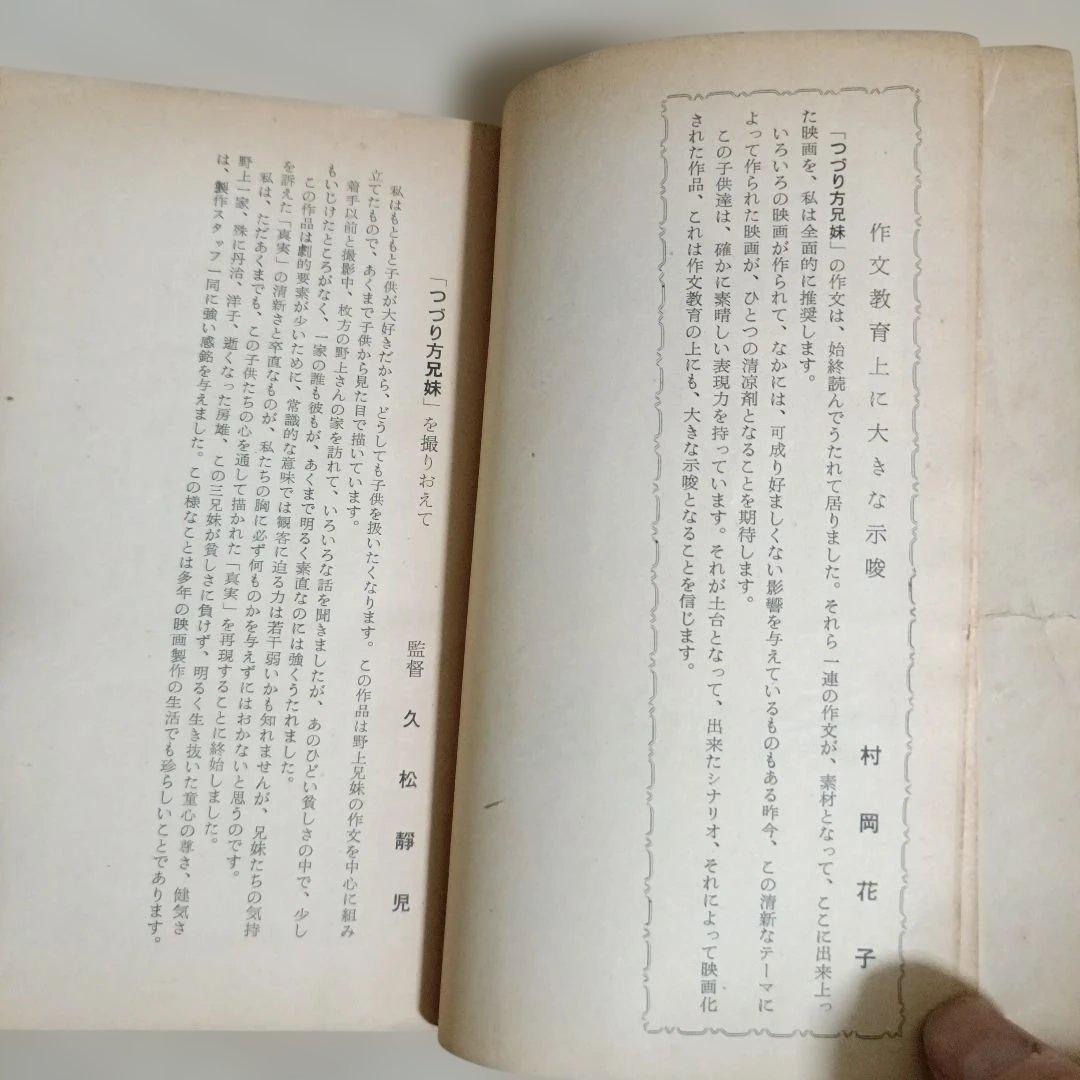 作文教育上に大きな示唆
村岡花子
「つづり方兄妹」の作文は、始終読んでうたれて居りました。それら一連の作文が、素材となって、ここに出来上っ
た映画を、私は全面的に推奨します。
いろいろの映画が作られて、なかには、可成り好ましくない影響を与えているものもある昨今、この清新なテーマに
よって作られた映画が、ひとつの清凉剤となることを期待します。
この子供達は、確かに素晴しい表現力を持っています。それが土台となって、出来たシナリオ、それによって映画化
された作品、これは作文教育の上にも、大きな示唆となることを信じます。
「つづり方兄妹」を撮りおえて
監督 久松靜児
私はもともと子供が大好きだから、どうしても子供を扱いたくなります。この作品は野上兄妹の作文を中心に組み
立てたもので、あくまで子供から見た目で描いています。
着手以前と撮影中、枚方の野上さんの家を訪れて、いろいろな話を聞きましたが、あのひどい貧しさの中で、少し
もいじけたところがなく、一家の誰も彼もが、あくまで明るく素直なのには強くうたれました。
この作品は劇的要素が少いために、常識的な意味では観客に迫る力は若干弱いかも知れませんが、兄妹たちの気持
を訴えた「真実」の清新さと卒直なものが、私たちの胸に必ず何ものかを与えずにはおかないと思うのです。
私は、ただあくまでも、この子供たちの心を通して描かれた「真実」を再現することに終始しました。
野上一家、殊に丹治、洋子、逝くなった房雄、この三兄妹が貧しさに負けず、明るく生き抜いた童心の尊さ、健気さ
は、製作スタッフ一同に強い感銘を与えました。この様なことは多年の映画製作の生活でも珍らしいことであります。